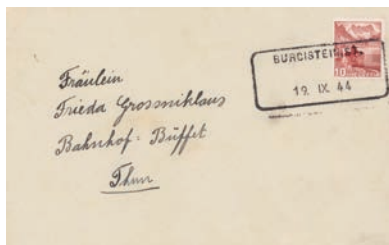 10
BURGISTEIN
19. IX. 44
Fräulein
Frieda Grossniklaus
Bahnhof-Büffet
Thun